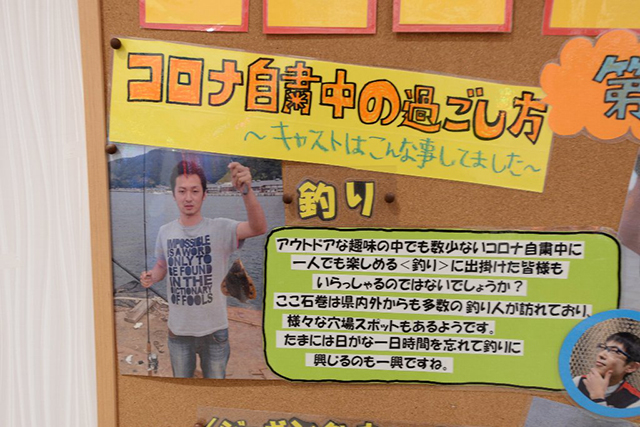 コロナ自粛中の過ごし方
～キャストはこんな事してました～
第
釣り
IMPOSSIBLE
IS A WORD
ONLY TO BE
FOUND IN
THE
DICTIONARY
OF FOOLS
アウトドアな趣味の中でも数少ないコロナ自粛中に
一人でも楽しめる＜釣り＞に出掛けた皆様も
いらっしゃるのではないでしょうか？
ここ石巻は県内外からも多数の釣り人が訪れており、
様々な穴場スポットもあるようです。
たまには日がな一日時間を忘れて釣りに
興じるのも一興ですね。